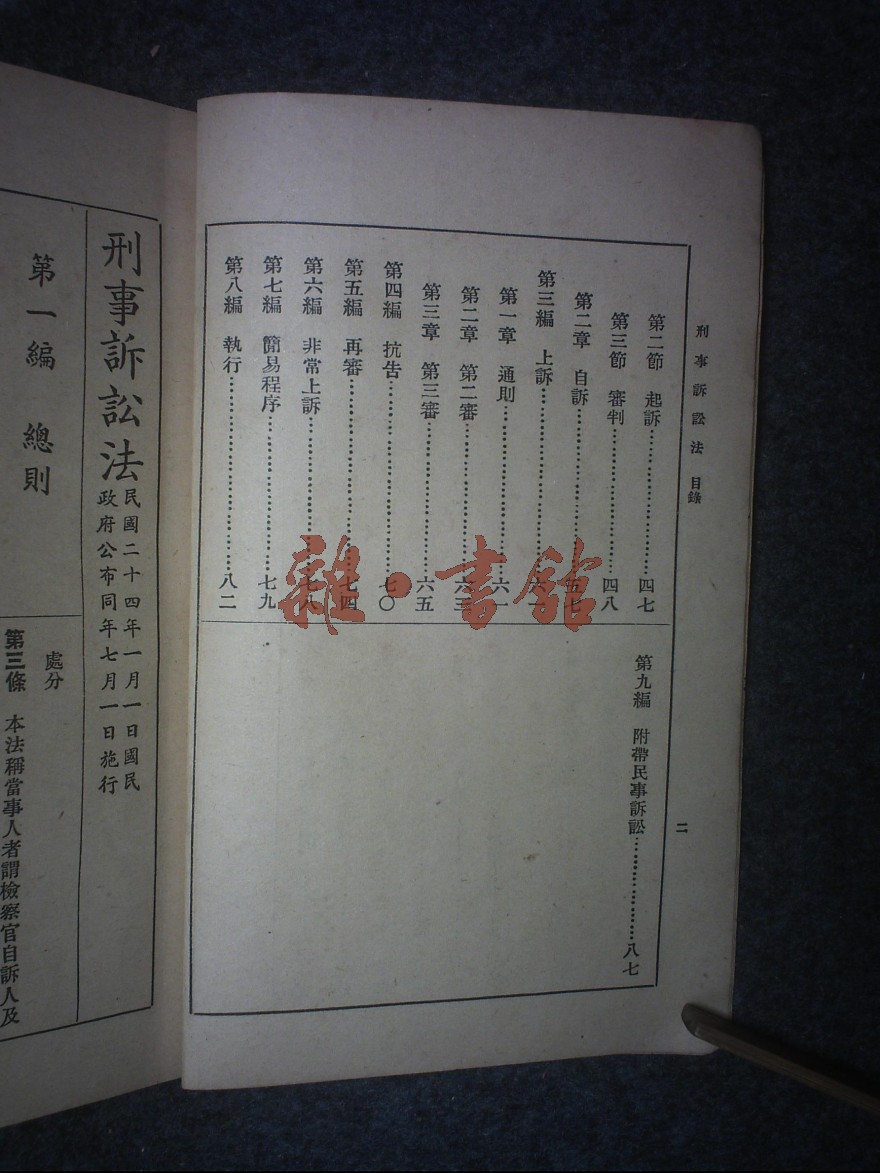 刑事訴訟法 目錄
二
第二節 起訴……四七
第三節 審判……四八
第二章 自訴……五七
第三編 上訴……六一
第一章 通則……六一
第二章 第二審……六三
第三章 第三審……六五
第四編 抗告……七〇
第五編 再審……七四
第六編 非常上訴……七八
第七編 簡易程序……七九
第八編 執行……八二
第九編 附帶民事訴訟……八七
雜·書館
刑事訴訟法
民國二十四年一月一日國民
政府公布同年七月一日施行
第一編 總則
處分
第三條 本法稱當事人者謂檢察官自訴人及